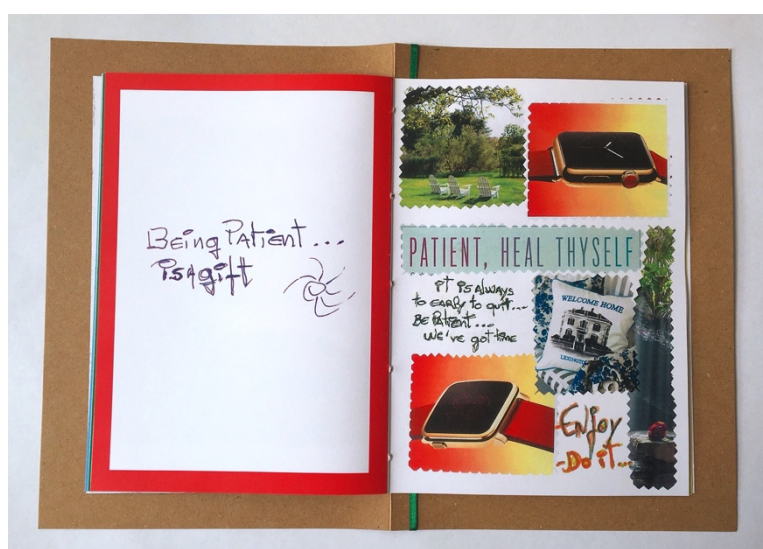 Being Patient...
is a gift
PATIENT, HEAL THYSELF
it is ALWAYS
to early to quit...
BE Patient...
we've got time
WELCOME HOME
LEXINGTON
Enjoy
-Do it...